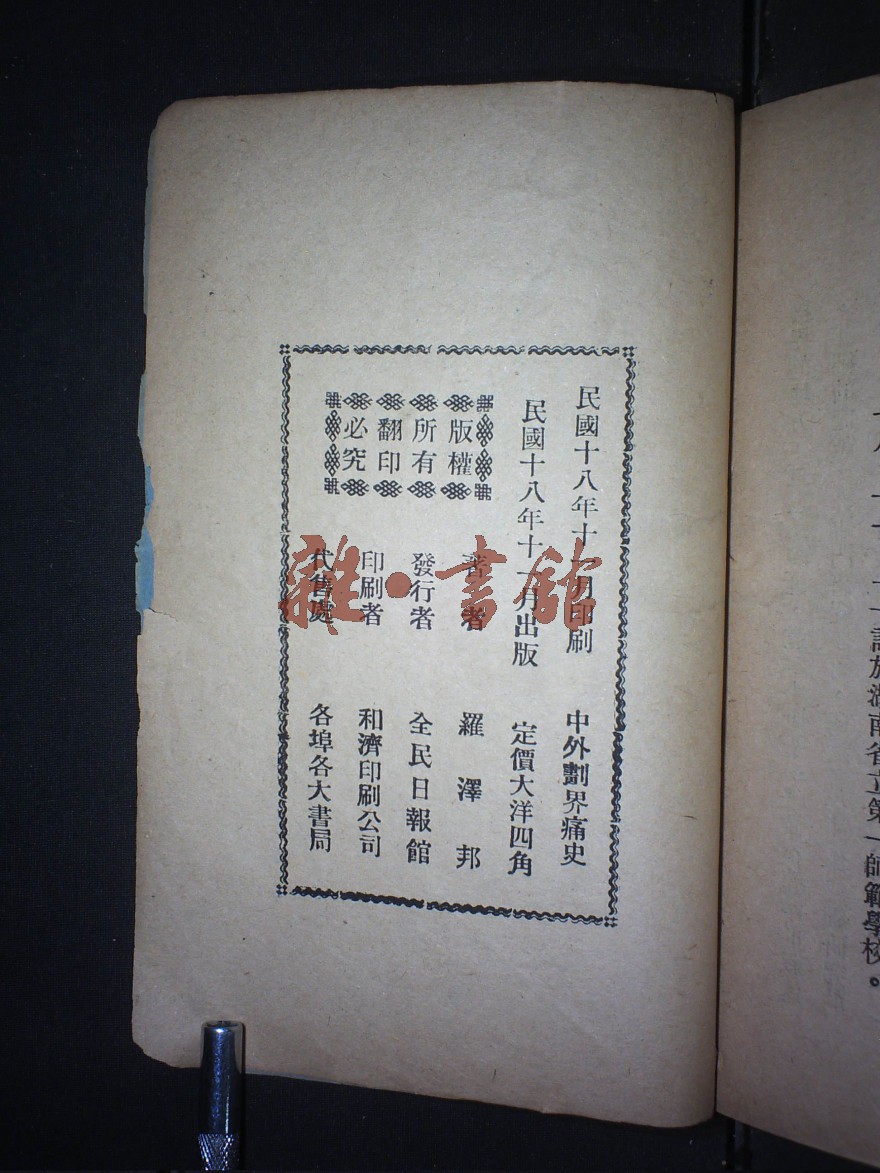 民國十八年十月印刷　中外劃界痛史
民國十八年十一月出版　定價大洋四角
版權
所有
翻印
必究
著者　羅澤邦
發行者　全民日報館
印刷者　和濟印刷公司
代售處　各埠各大書局
雜·書館
於湖南省立第一師範學校。